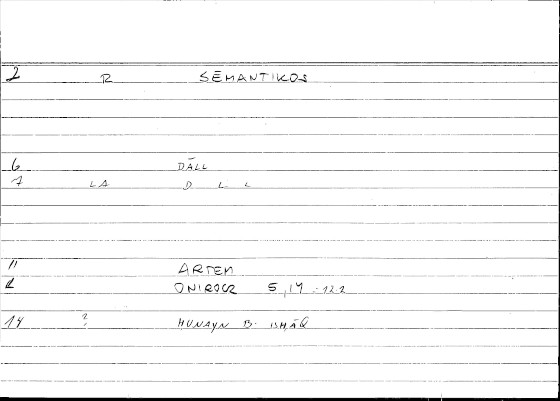 2 R SĒMANTIKOS
6 DĀLL
7 LA D L L
11 ARTEM
12 ONIROCR 5,14 - 12.2
14 ? HUNAYN B. ISHĀQ